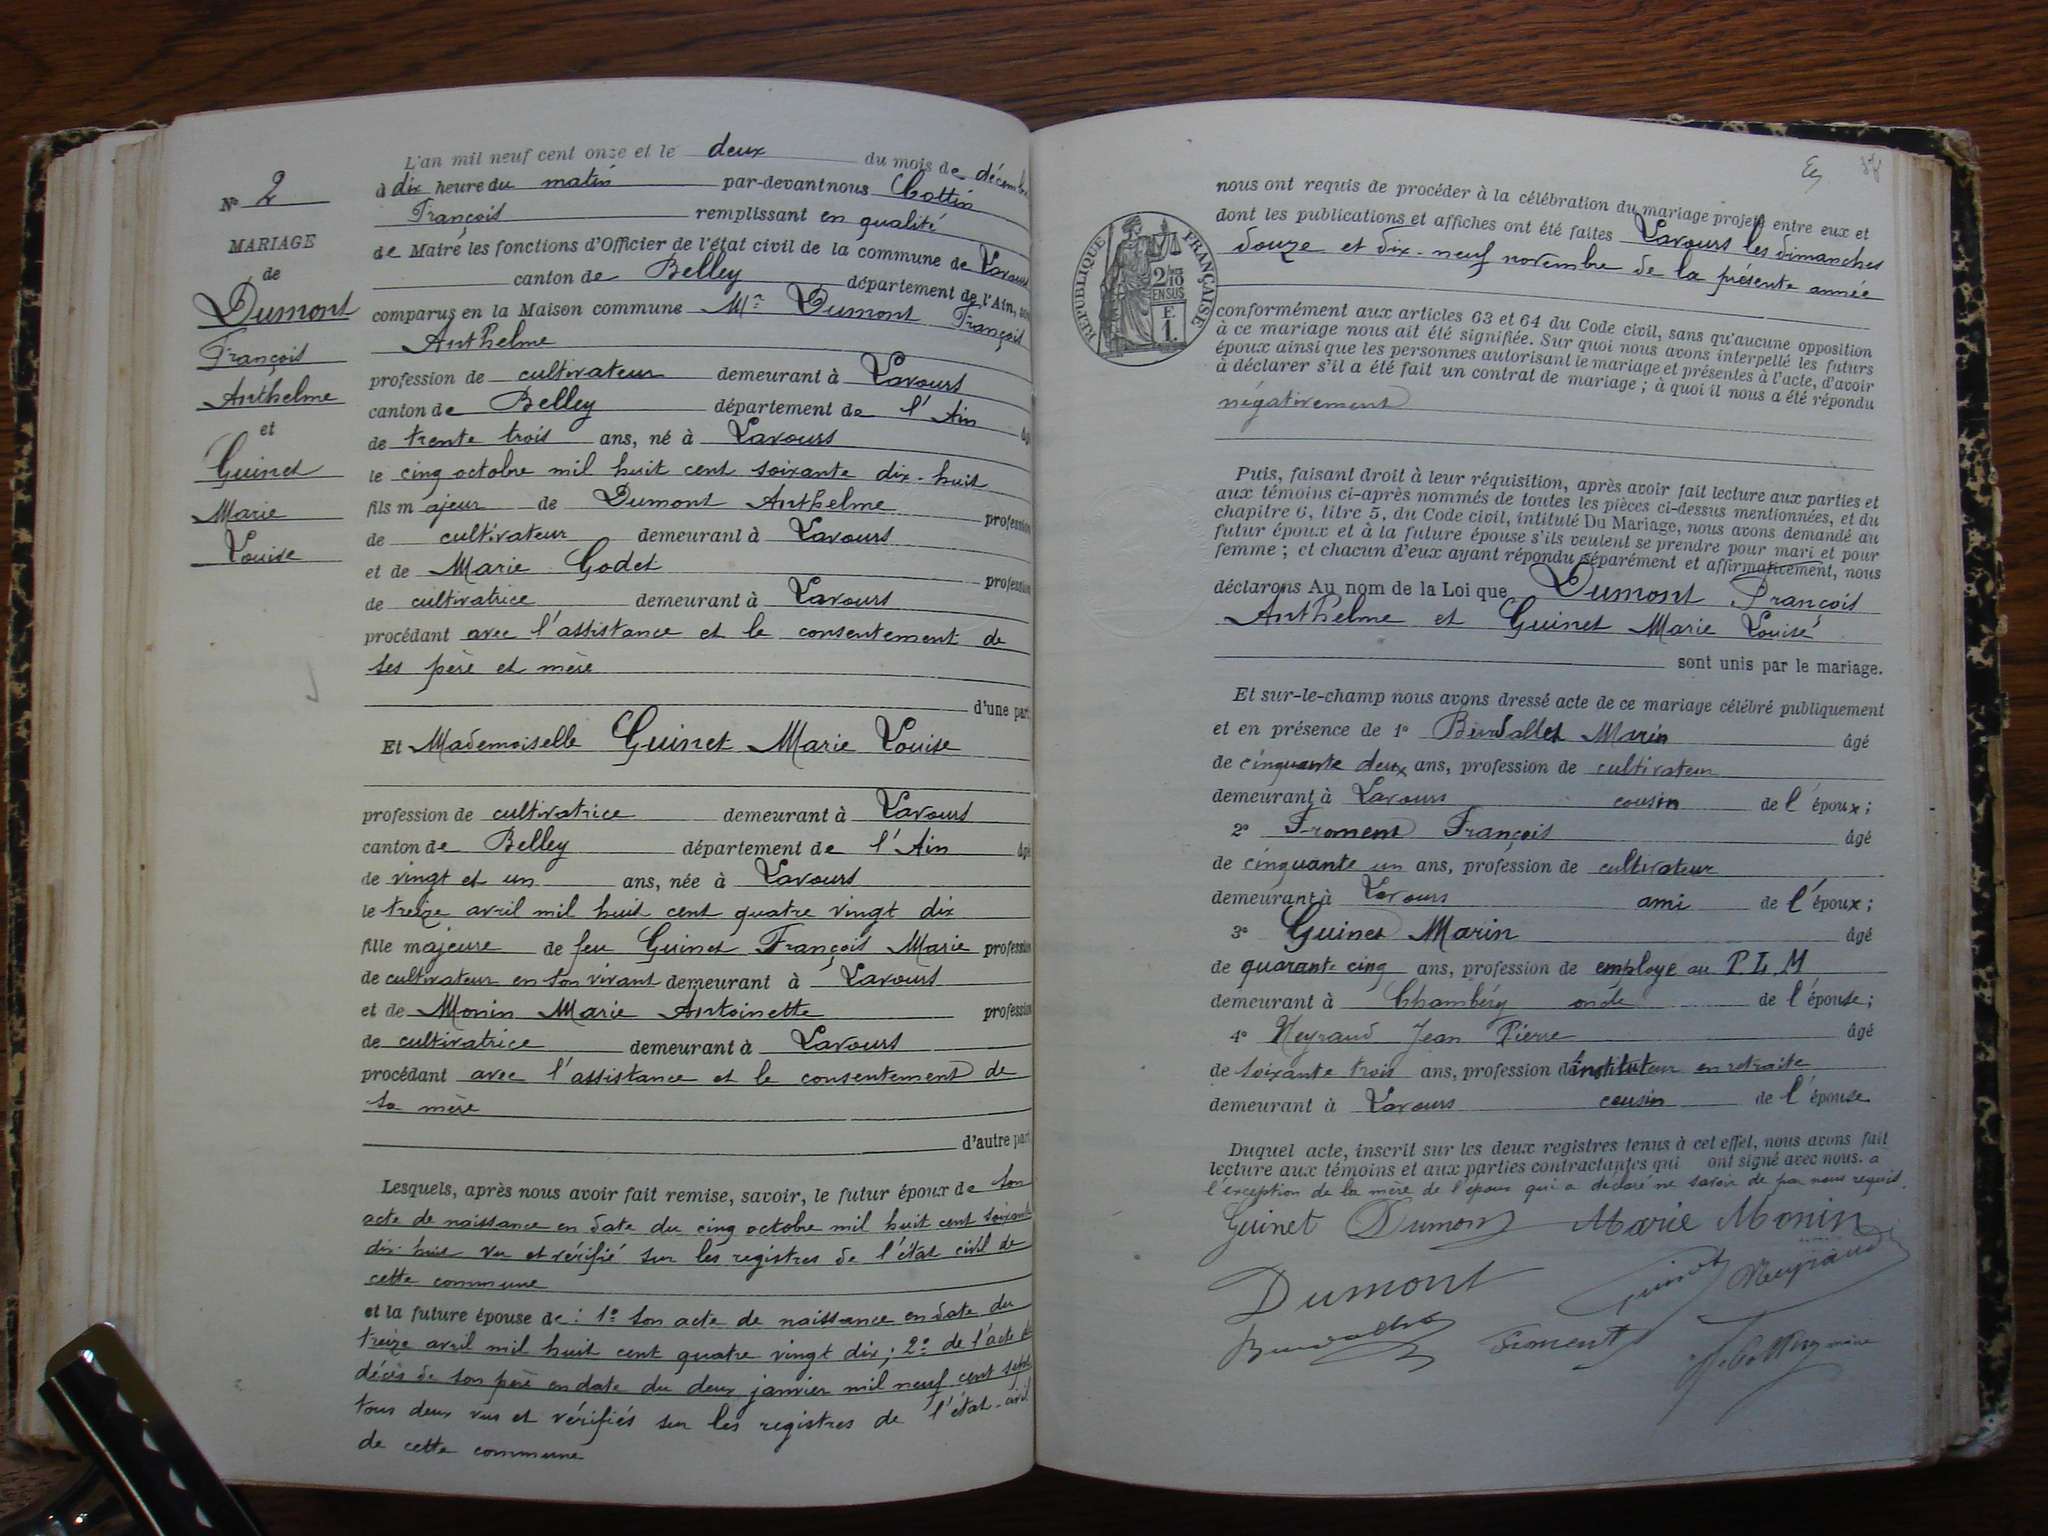 N° 2
MARIAGE
de
Dumont
François
Anthelme
et
Guinet
Marie
Louise
L'an mil neuf cent onze et le deux du mois de décembre
à dix heure du matin par-devant nous Cottin
François remplissant en qualité
de Maire les fonctions d'Officier de l'état civil de la commune de Lavours
canton de Belley département de l'Ain, sont
comparus en la Maison commune Mr Dumont François
Anthelme
profession de cultivateur demeurant à Lavours
canton de Belley département de l'Ain âgé
de trente trois ans, né à Lavours
le cinq octobre mil huit cent soixante dix-huit
fils majeur de Dumont Anthelme profession
de cultivateur demeurant à Lavours
et de Marie Godet profession
de cultivatrice demeurant à Lavours
procédant avec l'assistance et le consentement de
ses père et mère
d'une part
Et Mademoiselle Guinet Marie Louise
profession de cultivatrice demeurant à Lavours
canton de Belley département de l'Ain âgé
de vingt et un ans, née à Lavours
le treize avril mil huit cent quatre vingt dix
fille majeure de feu Guinet François Marie profession
de cultivateur en son vivant demeurant à Lavours
et de Monin Marie Antoinette profession
de cultivatrice demeurant à Lavours
procédant avec l'assistance et le consentement de
sa mère
d'autre part
Lesquels, après nous avoir fait remise, savoir, le futur époux de son
acte de naissance en date du cinq octobre mil huit cent soixante
dix-huit vu et vérifié sur les registres de l'état civil de
cette commune
et la future épouse de : 1° son acte de naissance en date du
treize avril mil huit cent quatre vingt dix ; 2° de l'acte de
décès de son père en date du deux janvier mil neuf cent sept
tous deux vus et vérifiés sur les registres de l'état-civil
de cette commune
nous ont requis de procéder à la célébration du mariage projeté entre eux et
dont les publications et affiches ont été faites Lavours les dimanches
douze et dix-neuf novembre de la présente année
RÉPUBLIQUE FRANÇAISE
2/10
EN SUS
E
1.
conformément aux articles 63 et 64 du Code civil, sans qu'aucune opposition
à ce mariage nous ait été signifiée. Sur quoi nous avons interpellé les futurs
époux ainsi que les personnes autorisant le mariage et présentes à l'acte, d'avoir
à déclarer s'il a été fait un contrat de mariage ; à quoi il nous a été répondu
négativement
Puis, faisant droit à leur réquisition, après avoir fait lecture aux parties et
aux témoins ci-après nommés de toutes les pièces ci-dessus mentionnées, et du
chapitre 6, titre 5, du Code civil, intitulé Du Mariage, nous avons demandé au
futur époux et à la future épouse s'ils veulent se prendre pour mari et pour
femme ; et chacun d'eux ayant répondu séparément et affirmativement, nous
déclarons Au nom de la Loi que Dumont François
Anthelme et Guinet Marie Louise
sont unis par le mariage.
Et sur-le-champ nous avons dressé acte de ce mariage célébré publiquement
et en présence de 1° Marin âgé
de cinquante deux ans, profession de cultivateur
demeurant à Lavours cousin de l'époux ;
2° Froment François âgé
de cinquante un ans, profession de cultivateur
demeurant à Lavours ami de l'époux ;
3° Guinet Marin âgé
de quarante cinq ans, profession de employé au P.L.M
demeurant à Chambéry oncle de l'épouse ;
4° Neyraud Jean Pierre âgé
de soixante trois ans, profession d'instituteur en retraite
demeurant à Lavours cousin de l'épouse
Duquel acte, inscrit sur les deux registres tenus à cet effet, nous avons fait
lecture aux témoins et aux parties contractantes qui ont signé avec nous. a
l'exception de la mère de l'époux qui a déclaré ne savoir de par nous requis.
Guinet Dumont Marie Monin
Dumont Guinet Neyraud
Froment maire